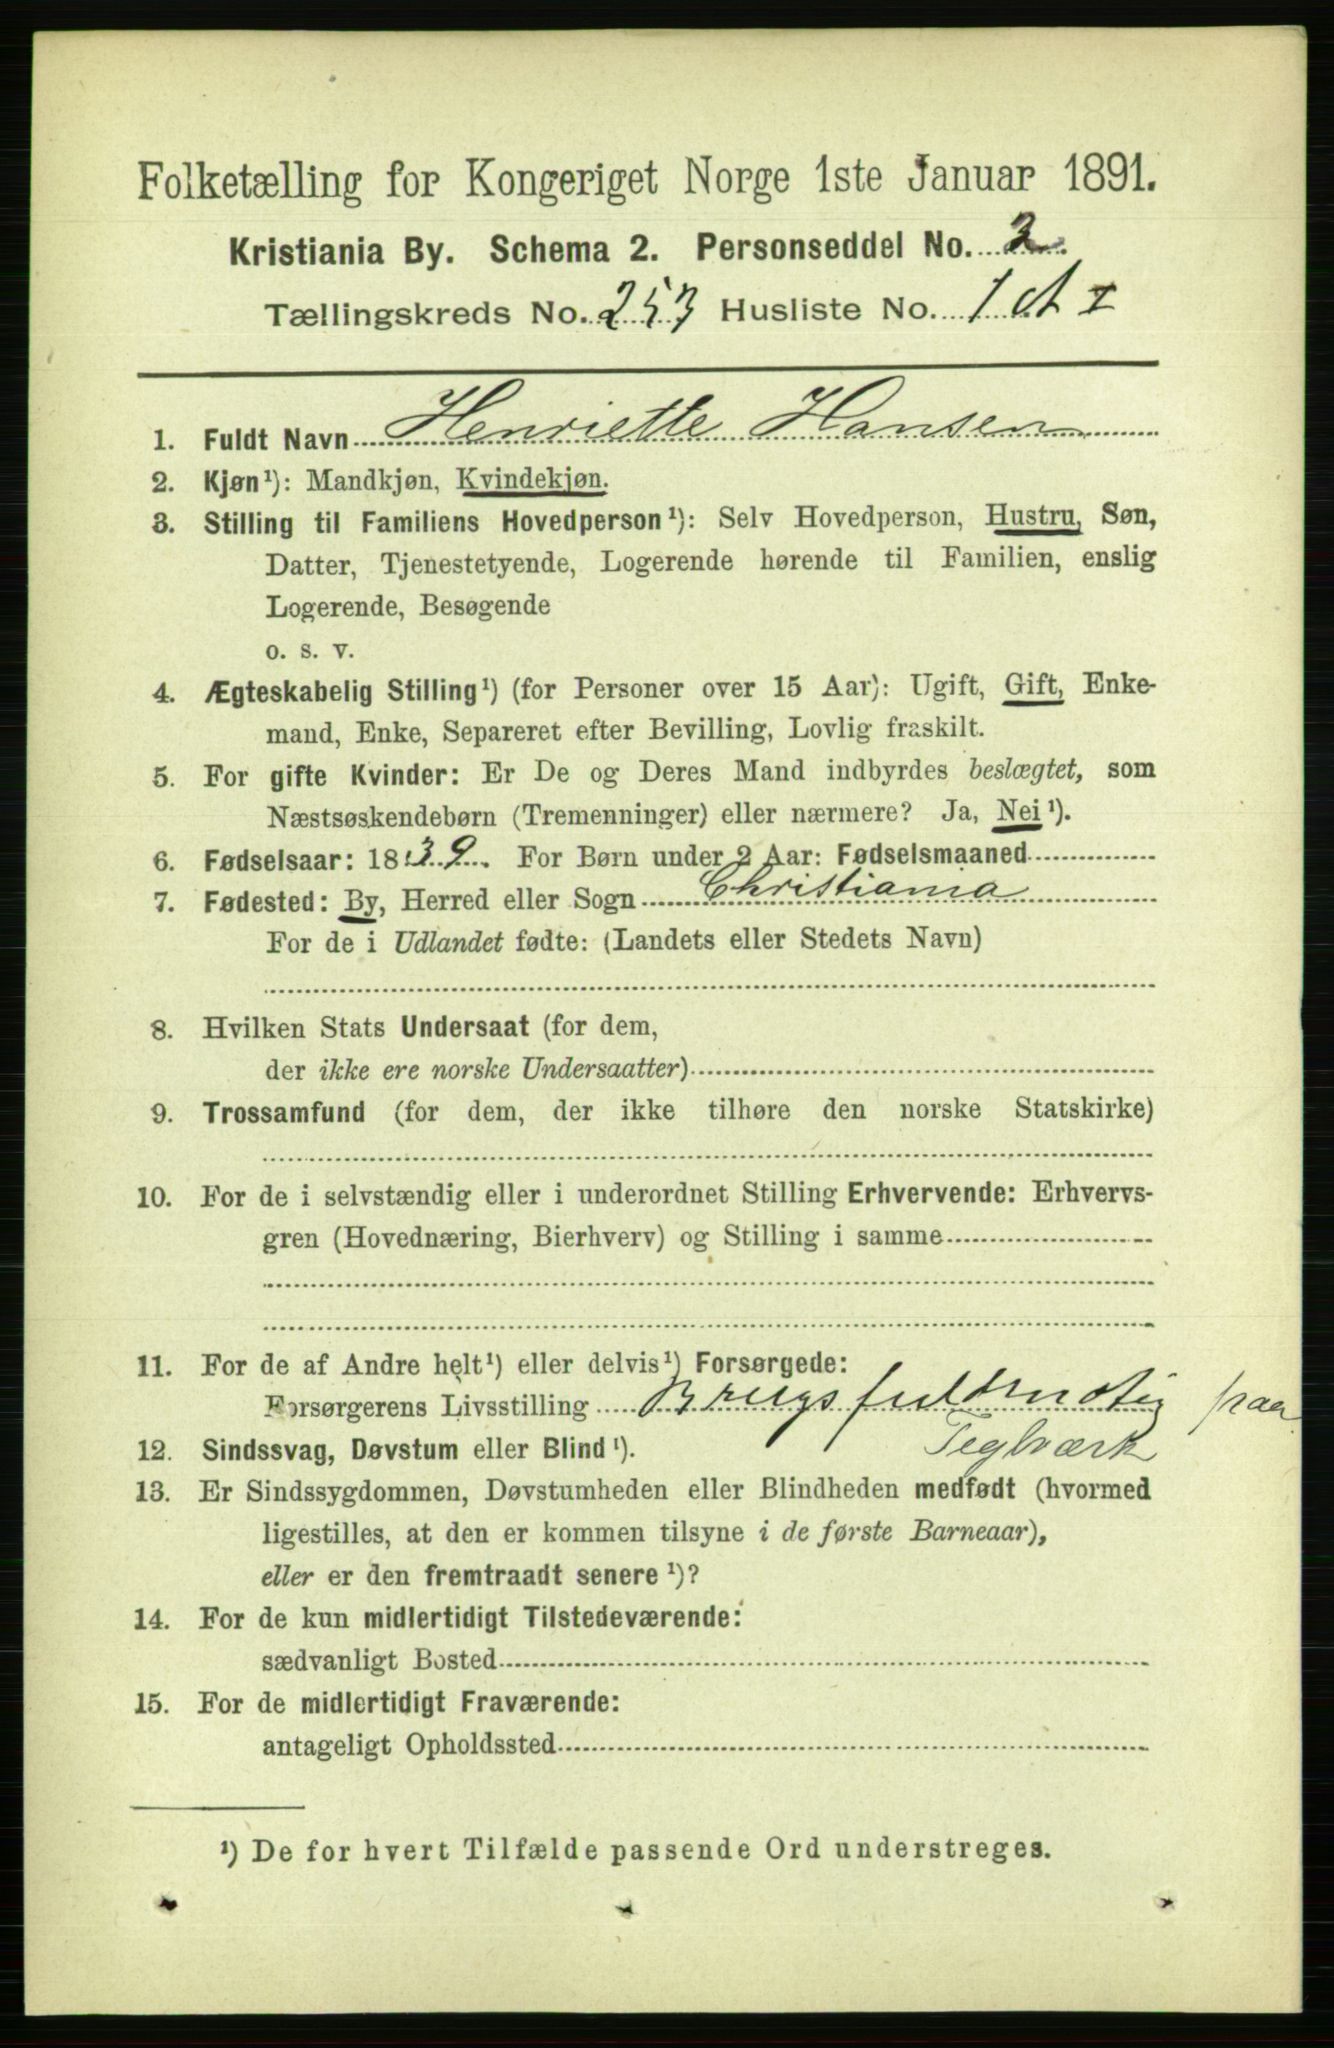 Folketælling for Kongeriget Norge 1ste Januar 1891.
Kristiania By. Schema 2. Personseddel No. 2.
Tællingskreds No. 253 Husliste No. 1 A I
1. Fuldt Navn Henriette Hansen
2. Kjøn¹): Mandkjøn, Kvindekjøn.
3. Stilling til Familiens Hovedperson¹): Selv Hovedperson, Hustru, Søn,
Datter, Tjenestetyende, Logerende hørende til Familien, enslig
Logerende, Besøgende
o. s. v.
4. Ægteskabelig Stilling¹) (for Personer over 15 Aar): Ugift, Gift, Enke-
mand, Enke, Separeret efter Bevilling, Lovlig fraskilt.
5. For gifte Kvinder: Er De og Deres Mand indbyrdes beslægtet, som
Næstsøskendebørn (Tremenninger) eller nærmere? Ja, Nei¹).
6. Fødselsaar: 1839. For Børn under 2 Aar: Fødselsmaaned
7. Fødested: By, Herred eller Sogn Christiania
For de i Udlandet fødte: (Landets eller Stedets Navn)
8. Hvilken Stats Undersaat (for dem,
der ikke ere norske Undersaatter)
9. Trossamfund (for dem, der ikke tilhøre den norske Statskirke)
10. For de i selvstændig eller i underordnet Stilling Erhvervende: Erhvervs-
gren (Hovednæring, Bierhverv) og Stilling i samme
11. For de af Andre helt¹) eller delvis¹) Forsørgede:
Forsørgerens Livsstilling Brugsfuldmægtig paa
Teglværk
12. Sindssvag, Døvstum eller Blind¹).
13. Er Sindssygdommen, Døvstumheden eller Blindheden medfødt (hvormed
ligestilles, at den er kommen tilsyne i de første Barneaar),
eller er den fremtraadt senere¹)?
14. For de kun midlertidigt Tilstedeværende:
sædvanligt Bosted
15. For de midlertidigt Fraværende:
antageligt Opholdssted
¹) De for hvert Tilfælde passende Ord understreges.